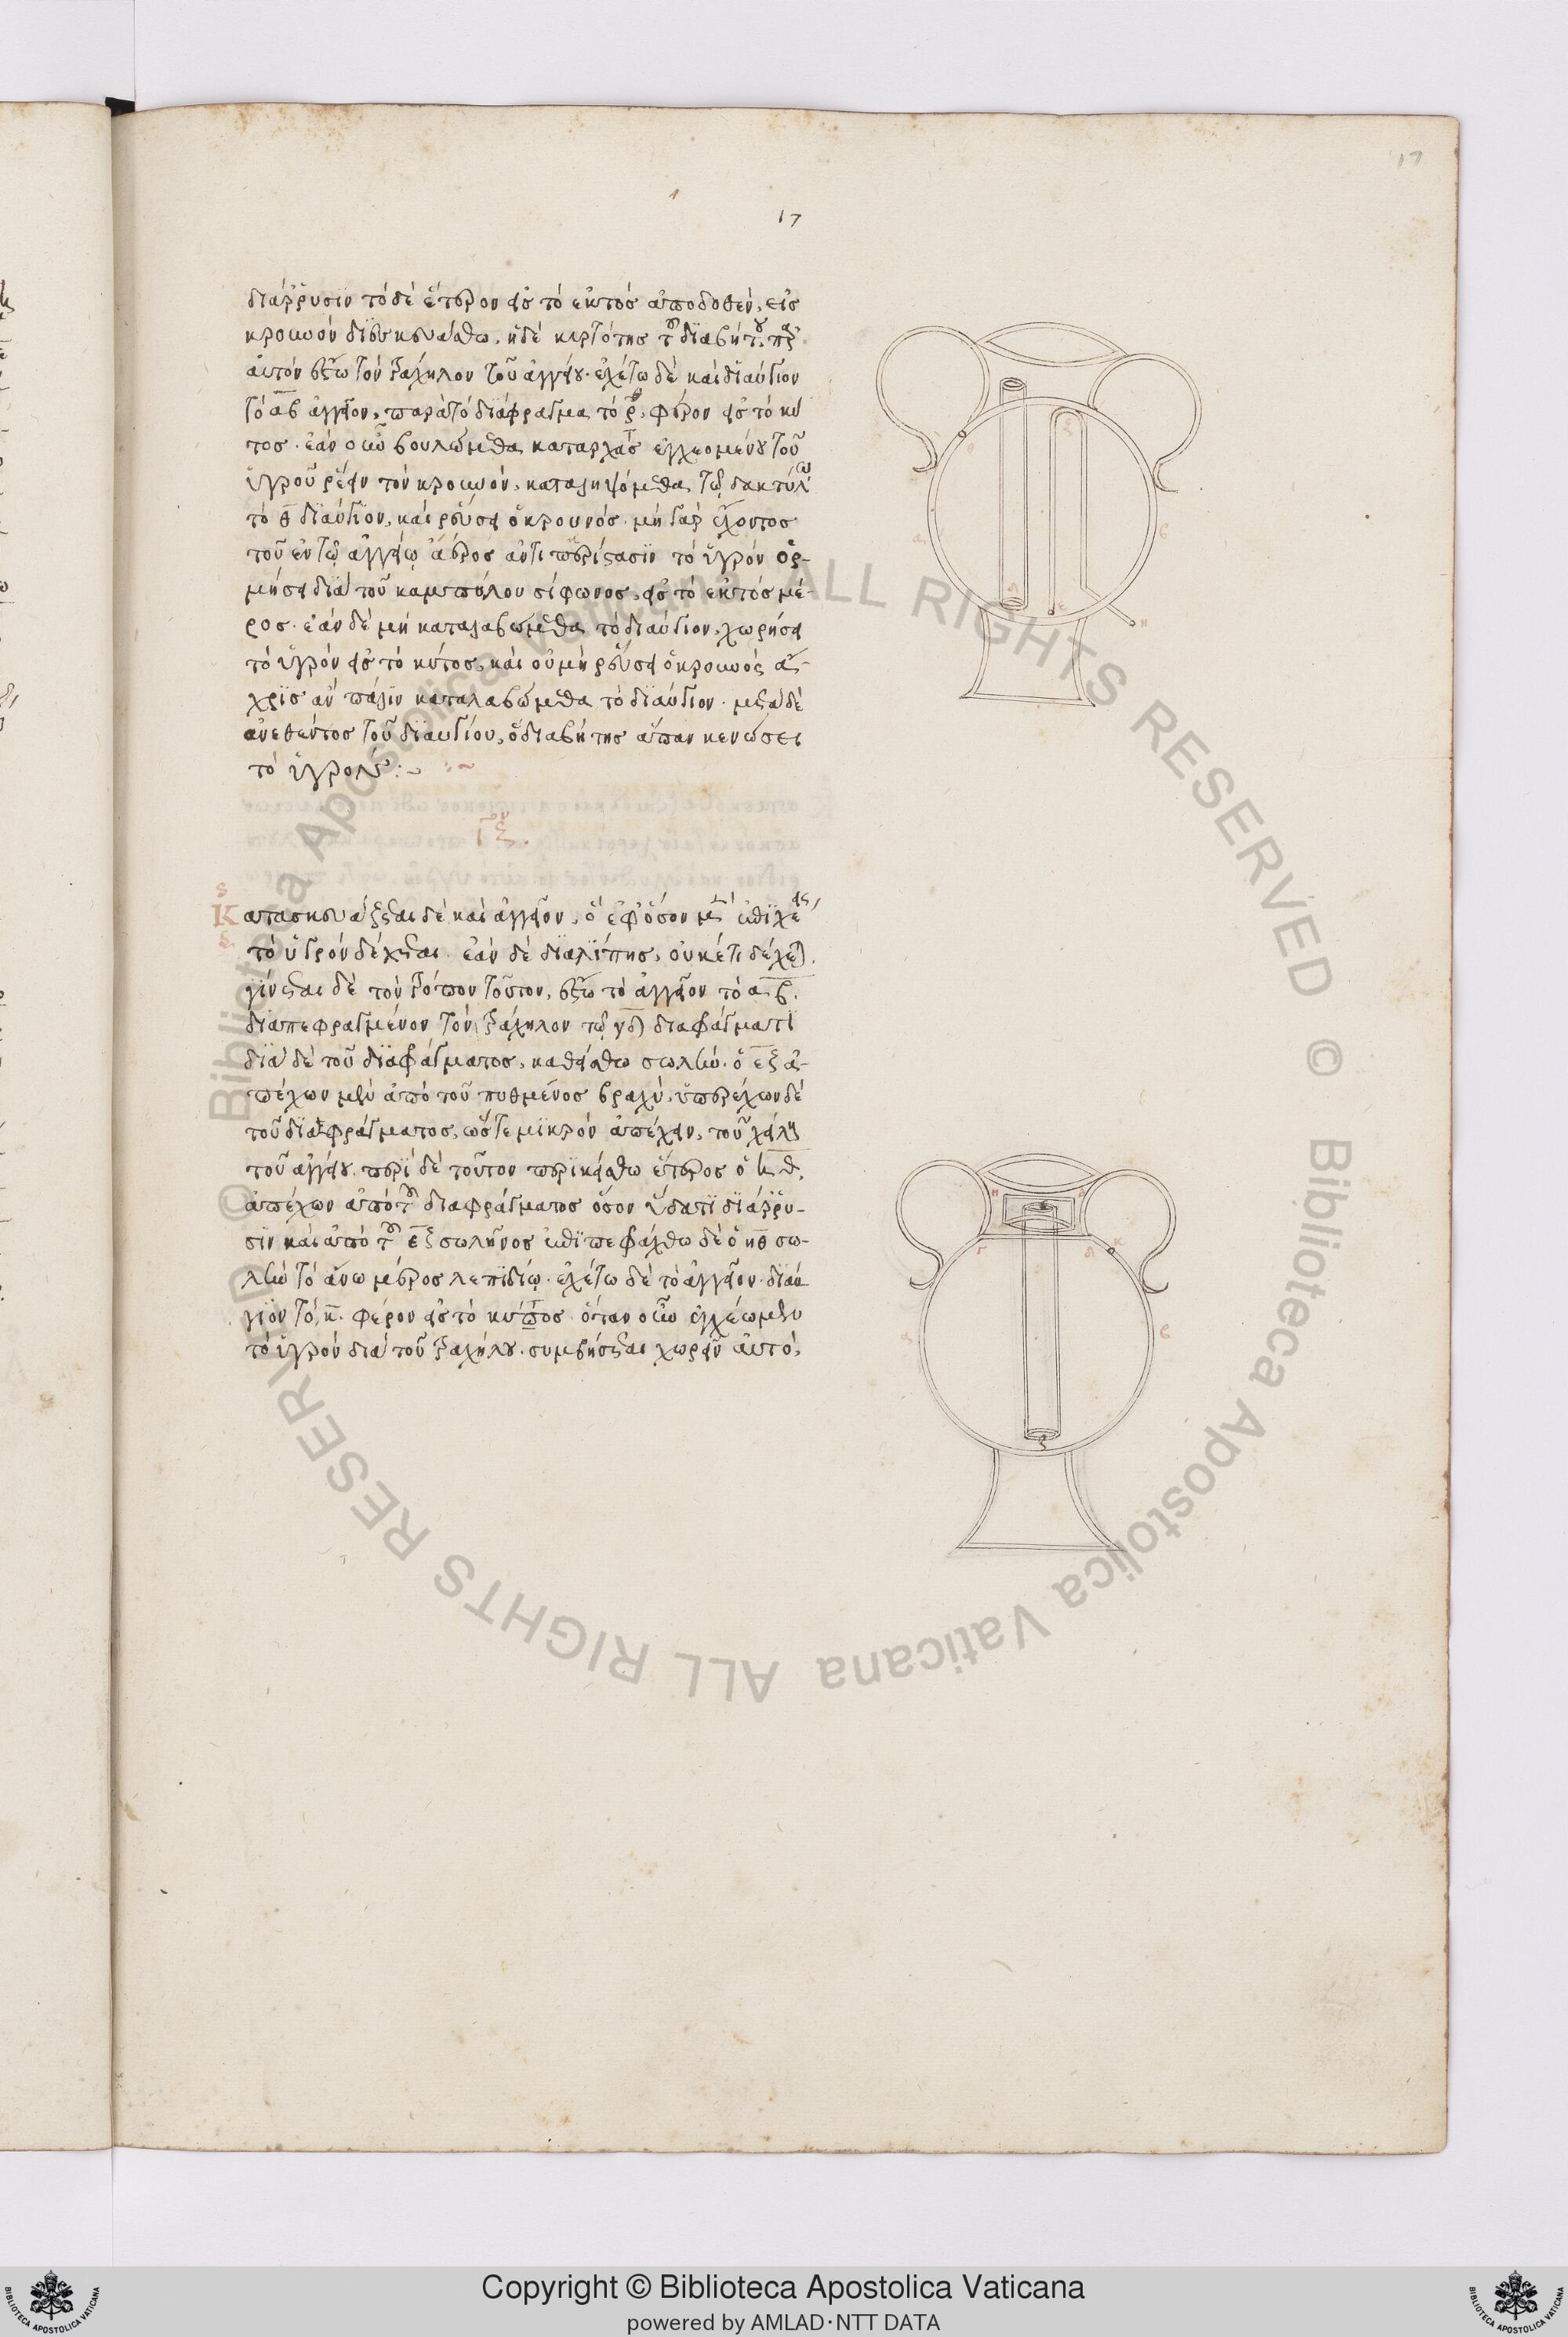 17
17
διάῤῥυσιν τὸ δὲ ἕτερον εἰς τὸ ἐκτὸς ἀποδοθὲν, εἰς
κρουνὸν διεσκευάσθω. ἡ δὲ κυρτότης τοῦ διαβήτου
αὐτὸν ἔστω τὸν τράχηλον τοῦ ἀγγείου. ἐχέτω δὲ καὶ διαύγιον
τὸ αβ ἀγγεῖον, παρὰ τὸ διάφραγμα τὸ φέρον εἰς τὸ κύ
τος. ἐὰν οὖν βουλώμεθα καταρχὰς ἐγχεομένου τοῦ
ὑγροῦ ῥεῖν τὸν κρουνὸν, καταληψόμεθα τῷ δακτύλῳ
τὸ θ διαύγιον, καὶ ῥεύσει ὁ κρουνός. μὴ γὰρ ἔχοντος
τοῦ ἐν τῷ ἀγγείῳ ἀέρος ἀντιπερίστασιν τὸ ὑγρὸν ὁρ-
μήσει διὰ τοῦ καμπύλου σίφωνος, εἰς τὸ ἐκτὸς μέ-
ρος. ἐὰν δὲ μὴ καταλαβώμεθα τὸ διαύγιον, χωρήσει
τὸ ὑγρὸν εἰς τὸ κύτος, καὶ οὐ μὴ ῥεύσει ὁ κρουνός ἄ-
χρις ἂν πάλιν καταλαβώμεθα τὸ διαύγιον. μετὰ δὲ
ἀνεθέντος τοῦ διαυγίου, ὁ διαβήτης ἅπαν κενώσει
τὸ ὑγρόν :~
Κατασκευάζεται δὲ καὶ ἀγγεῖον, ὃ ἐφ ὅσον μὲν ἐπιχεῖς,
τὸ ὑγρὸν δέχεται. ἐὰν δὲ διαλίπῃς, οὐκέτι δέχεται.
γίνεται δὲ τὸν τρόπον τοῦτον, ἔστω τὸ ἀγγεῖον τὸ αβ.
διαπεφραγμένον τὸν τράχηλον τῷ γδ διαφράγματι
διὰ δὲ τοῦ διαφράγματος, καθείσθω σωλὴν. ὁ εζ ἀ-
πέχων μὲν ἀπὸ τοῦ πυθμένος βραχὺ, ὑπερέχων δὲ
τοῦ διαφράγματος, ὥστε μικρὸν ἀπέχειν, τοῦ χείλους
τοῦ ἀγγείου. περὶ δὲ τοῦτον περικείσθω ἕτερος ὁ ηθ,
ἀπέχων ἀπὸ τοῦ διαφράγματος ὅσον ὕδατι διάῤῥυ-
σιν καὶ ἀπὸ τοῦ εζ σωλῆνος ἐπιπεφράχθω δὲ ὁ ηθ σω-
λὴν τὸ ἄνω μέρος λεπιδίῳ. ἐχέτω δὲ τὸ ἀγγεῖον διαύ
γιον τὸ κ. φέρον εἰς τὸ κύτος. ὅταν οὖν ἐγχέωμεν
τὸ ὑγρὸν διὰ τοῦ τραχήλου. συμβήσεται χωρεῖν αὐτὸ,
Copyright © Biblioteca Apostolica Vaticana
powered by AMLAD・NTT DATA
© Biblioteca Apostolica Vaticana ALL RIGHTS RESERVED © Biblioteca Apostolica Vaticana ALL RIGHTS RESERVED